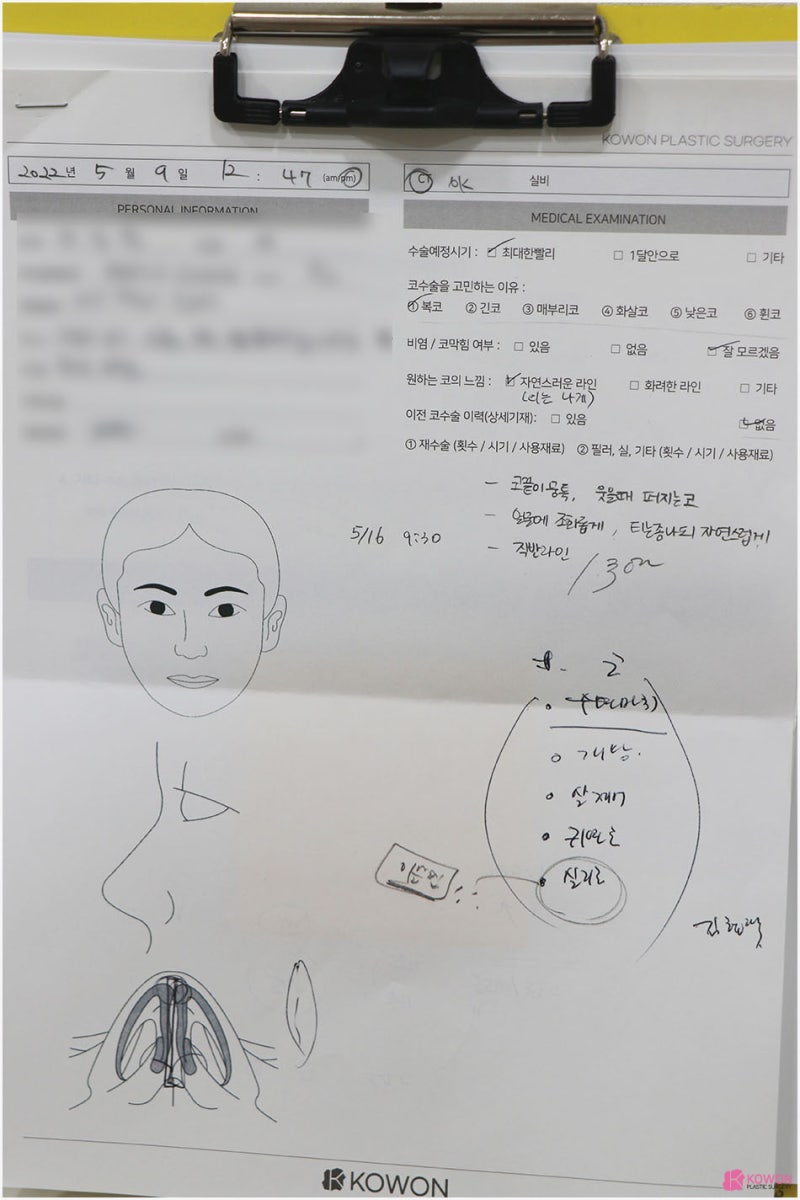 KOWON PLASTIC SURGERY
2022년 5월 9일 12 : 47 (am/pm)
CT ok 실비
PERSONAL INFORMATION
MEDICAL EXAMINATION
수술예정시기 : □ 최대한빨리 □ 1달안으로 □ 기타
코수술을 고민하는 이유 :
① 복코 ② 긴코 ③ 매부리코 ④ 화살코 ⑤ 낮은코 ⑥ 휜코
비염 / 코막힘 여부 : □ 있음 □ 없음 □ 잘 모르겠음
원하는 코의 느낌 : □ 자연스러운 라인 □ 화려한 라인 □ 기타
(티는 나게)
이전 코수술 이력(상세기재): □ 있음 □ 없음
① 재수술 (횟수 / 시기 / 사용재료) ② 필러, 실, 기타 (횟수 / 시기 / 사용재료)
- 코끝이 뭉툭, 웃을때 퍼지는코
- 얼굴에 조화롭게, 티는좀나되 자연스럽게
- 직반라인
5/16 9:30
개방.
귀연골
실리콘
KOWON
KOWON
PLASTIC SURGERY